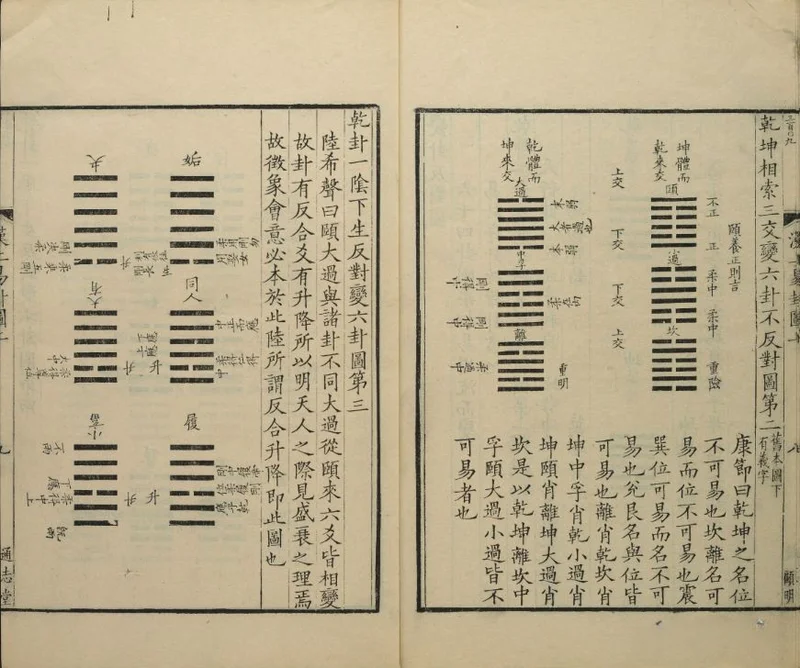 乾坤相索三交變六卦不反對圖第二
舊本圖下
有義字
坤體而
乾來交
頤
不正
正
柔中
柔中
重險
頤養正則吉
小過
坎
上交
下交
下交
上交
乾體而
坤來交
大過
本弱
大者過也
本弱
中孚
柔在內
剛得中
剛得中
離
重明
康節曰乾坤之名位
不可易也坎離名可
易而位不可易也震
巽位可易而名不可
易也兌艮名與位皆
可易也離肖乾坎肖
坤中孚肖乾小過肖
坤頤肖離坤大過肖
坎是以乾坤離坎中
孚頤大過小過皆不
可易者也
顧明
乾卦一陰下生反對變六卦圖第三
陸希聲曰頤大過與諸卦不同大過從頤來六爻皆相變
故卦有反合爻有升降所以明天人之際見盛衰之理焉
故徵象會意必本於此陸所謂反合升降即此圖也
姤
夬
升
同人
大有
升
升
履
小畜
升
升
漢上易卦圖上
九
通志堂